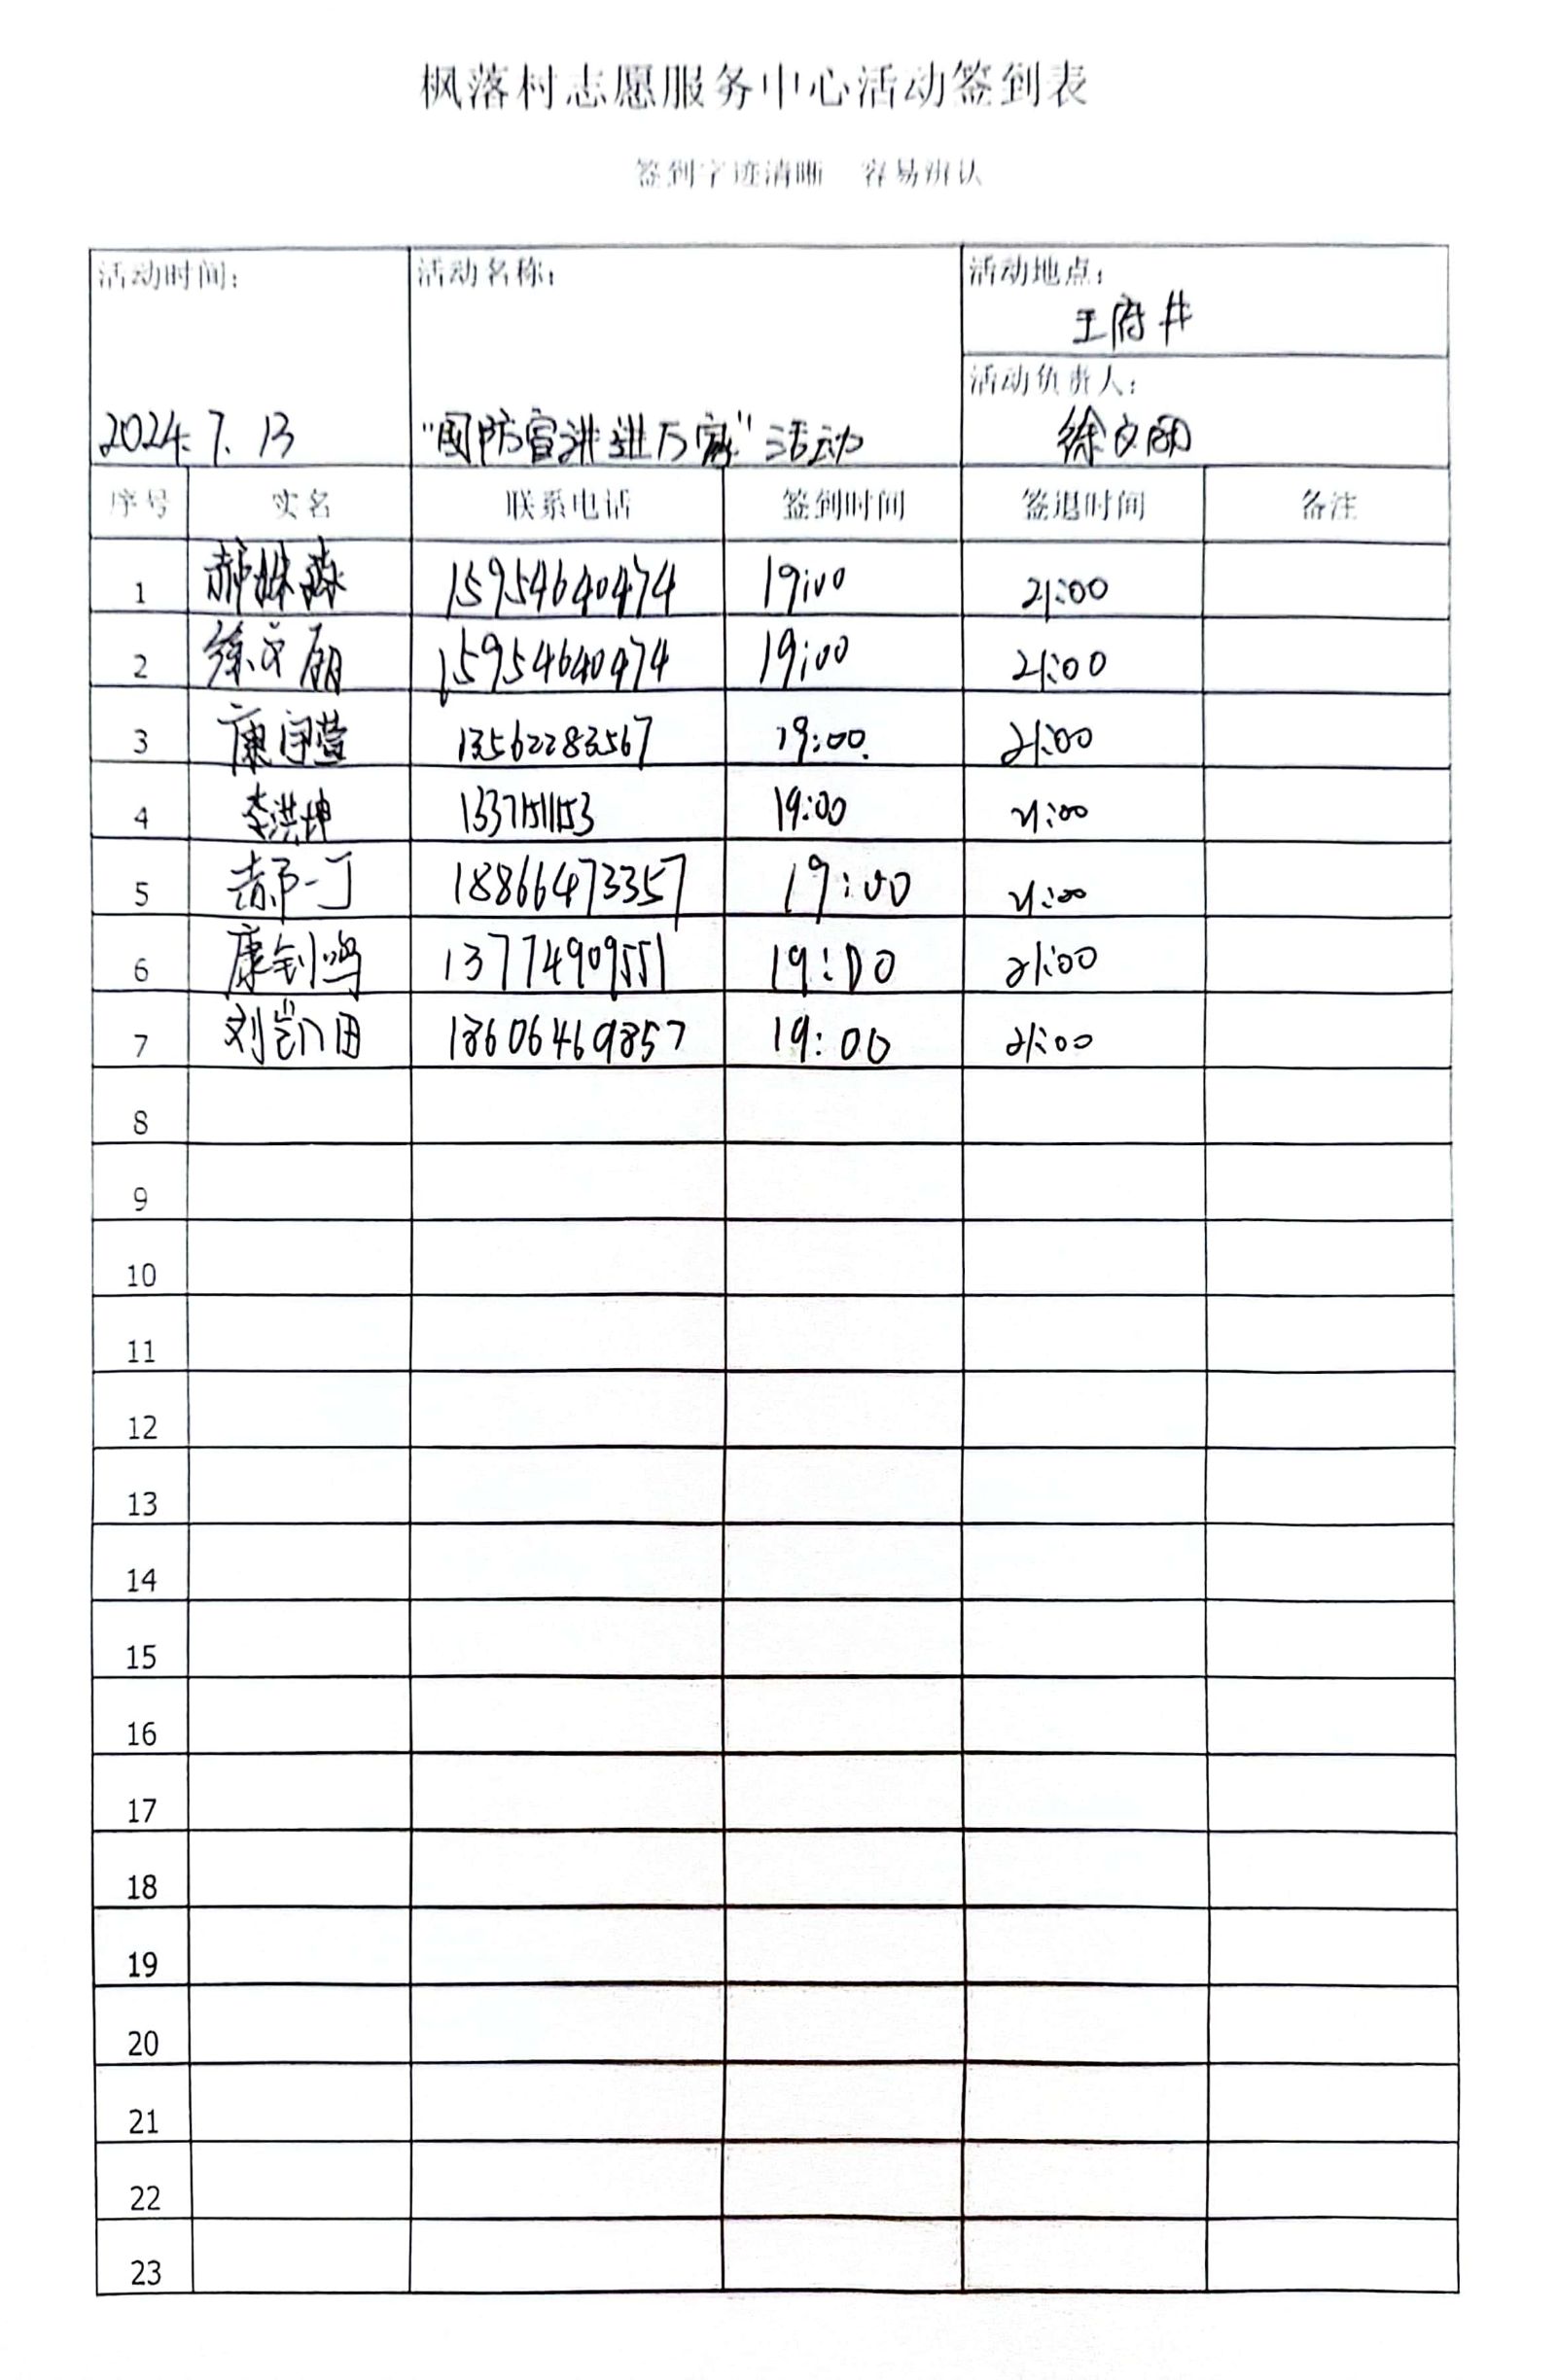 枫落村志愿服务中心活动签到表
签到字迹清晰 容易辨认
活动时间： 活动名称： 活动地点：
王府井
活动负责人：
2024.7.13 "国防宣讲进万家"活动 徐文丽
序号 实名 联系电话 签到时间 签退时间 备注
1 郝姝淼 15954640474 19:00 21:00
2 徐文丽 15954640474 19:00 21:00
3 康闰萱 13562283567 19:00 21:00
4 李洪坤 19:00 21:00
5 郝一丁 18866473357 19:00 21:00
6 康钊鸣 13774909551 19:00 21:00
7 刘凯田 18606469857 19:00 21:00
8
9
10
11
12
13
14
15
16
17
18
19
20
21
22
23